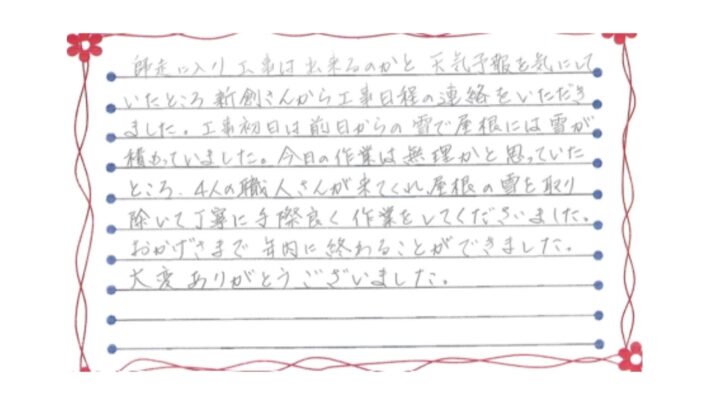 師走に入り工事は出来るのかと 天気予報を気にして
いたところ新創さんから工事日程の連絡をいただき
ました。工事初日は前日からの雪で屋根には雪が
積もっていました。今日の作業は無理かと思っていた
ところ、4人の職人さんが来てくれ、屋根の雪を取り
除いて丁寧に手際良く作業をしてくださいました。
おかげさまで年内に終わることができました。
大変ありがとうございました。